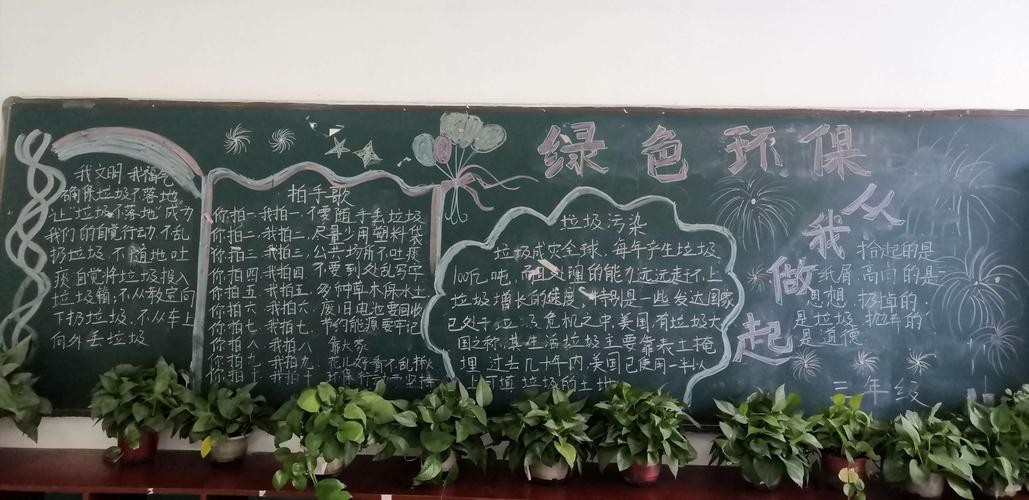 绿色环保
从我做起
我文明 我
确保垃圾不落地
让"垃圾不落地"成功
我们的自觉行动,不乱
扔垃圾,不随地吐
痰,自觉将垃圾投入
垃圾箱,不从教室向
下扔垃圾,不从车上
向外丢垃圾
拍手歌
你拍一,我拍一,不要随手丢垃圾
你拍二,我拍二,尽量少用塑料袋
你拍三,我拍三,公共场所不吐痰
你拍四,我拍四,不要到处乱写字
你拍五,我拍五,多种草木保水土
你拍六,我拍六,废旧电池要回收
你拍七,我拍七,节约能源要牢记
你拍八,我拍八 靠大家
你拍九 我拍九 花儿好看不乱揪
你拍十 我拍十 坚持
垃圾污染
垃圾成灾全球,每年产生垃圾
100亿吨,处理的能力远远赶不上
垃圾增长的速度,特别是一些发达国家
已处于垃圾危机之中,美国有垃圾大
国之称,其生活垃圾主要靠表土掩
埋,过去几十年内,美国已使用一半以
上可填垃圾的土地
拾起的是
纸屑,高尚的是
思想,扔掉的,
是垃圾,抛弃的
是道德
三年级